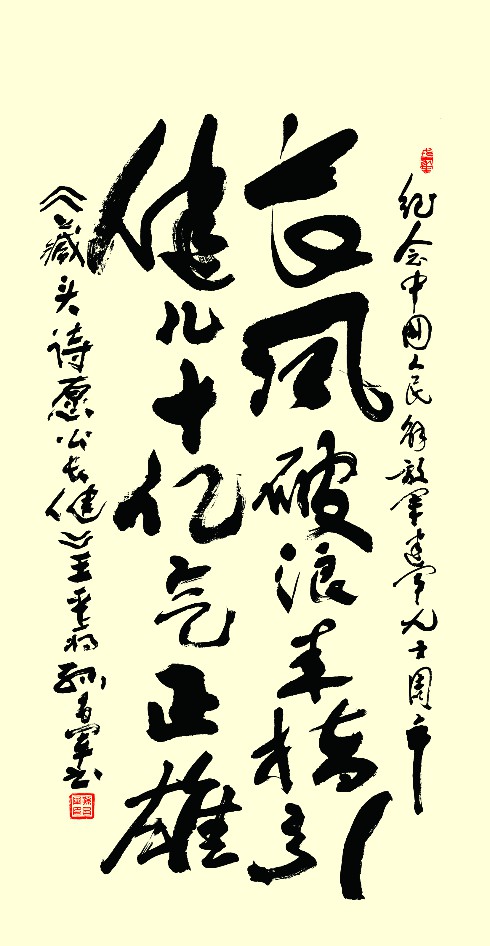 纪念中国人民解放军建军九十周年
长风破浪来引
健儿十亿气正雄
《藏头诗愿公长健》王孙军书